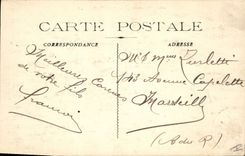 CARTE POSTALE
CORRESPONDANCE
ADRESSE
Meilleures Caresses
de votre fils
Mr & Mme Turletti
143 Avenue Capelette
Marseille
(B du R)